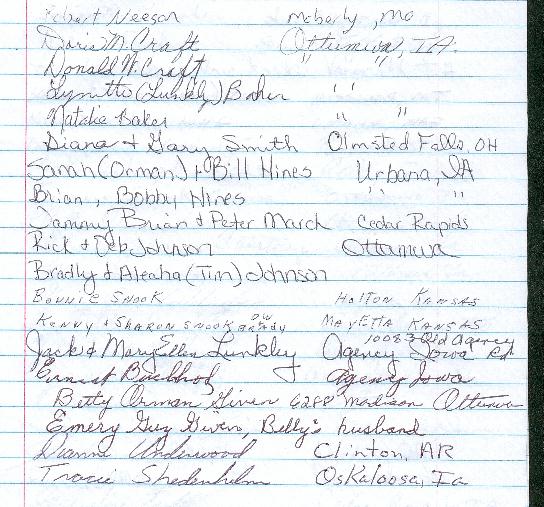 Robert Neeson Moberly, Mo
Doris M. Craft Ottumwa, IA.
Donald W. Craft " "
Lynette (Lunkley) Baker " "
Natalie Baker " "
Diana & Gary Smith Olmsted Falls, OH
Sarah (Orman) + Bill Hines Urbana, IA
Brian, Bobby Hines " "
Tammy Brian & Peter March Cedar Rapids
Rick & Deb Johnson Ottumwa
Bradly & Aleaha (Tim) Johnson
Bonnie Snook Holton Kansas
Kenny & Sharon Snook Brady Mayetta Kansas
Jack & Mary Ellen Lunkley Agency Iowa 10083 Old Agency Rd
Ernest Buckhol Agency Iowa
Betty Orman Given 6288 Madison Ottumwa
Emery Guy Given, Betty's husband
Dianne Underwood Clinton, AR
Tracie Shedenhelm Oskaloosa, Ia